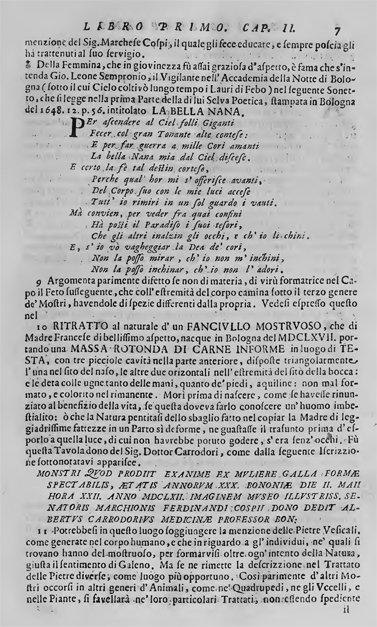 LIBRO PRIMO. CAP. II. 7
menzione del Sig. Marchese Cospi, il quale gli fece educare, e sempre poscia gli
hà trattenuti al suo servigio.
8 Della Femmina, che in giovinezza fù assai graziosa d'aspetto, è fama che s'in-
tenda Gio. Leone Sempronio, il Vigilante nell'Accademia della Notte di Bolo-
gna (sotto il cui Cielo coltivò lungo tempo i Lauri di Febo) nel seguente Sonet-
to, che si legge nella prima Parte della di lui Selva Poetica, stampata in Bologna
del 1648. 12. p. 56. intitolato LA BELLA NANA.
PEr ascendere al Ciel folli Giganti
Fecer col gran Tonante alte contese:
E per far guerra a mille Cori amanti
La bella Nana mia dal Ciel discese.
E certo la fè tal destin cortese,
Perche qual' hor mi s'offerisce avanti,
Del Corpo suo con le mie luci accese
Tutt' io rimiri in un sol guardo i vanti.
Mà convien, per veder fra quai confini
Hà posti il Paradiso i suoi tesori,
Che gli altri inalzin gli occhi, e ch' io li chini.
E, s' io vò vagheggiar la Dea de' cori,
Non la posso mirar, ch' io non m' inchini,
Non la posso inchinar, ch' io non l' adori.
9 Argomenta parimente difetto se non di materia, di virù formatrice nel Ca-
po il Feto susseguente, che coll'estremità del corpo camina sotto il terzo genere
de' Mostri, havendole di spezie differenti dalla propria. Vedesi espresso questo
nel
10 RITRATTO al naturale d' un FANCIVLLO MOSTRVOSO, che di
Madre Francese di bellissimo aspetto, nacque in Bologna del MDCLXVII. por-
tando una MASSA ROTONDA DI CARNE INFORME in luogo di TE-
STA, con tre picciole cavità nella parte anteriore, disposte triangolarmente,
l'una nel sito del naso, le altre due orizontali nell'estremità del sito della bocca:
e le deta colle ugne tanto delle mani, quanto de' piedi, aquiline: non mal for-
mato, e colorito nel rimanente. Mori prima di nascere, come se havesse rinun-
ziato al benefizio della vita, se questa doveva farlo conoscere un' huomo imbe-
stialito: ò che la Natura pentitasi dello sbaglio fatto nel copiar la Madre di leg-
giadrissime fattezze in un Parto sì deforme, ne guastasse il trasunto prima d' es-
porlo a quella luce, di cui non havrebbe potuto godere, s'era senz' occhi. Fù
questa Tavola dono del Sig. Dottor Carrodori, come dalla seguente Iscrizzio-
ne sottonotatavi apparisce.
MONSTRI QVOD PRODIIT EXANIME EX MVLIERE GALLA FORMÆ
SPECTABILIS, ÆTATIS ANNORVM XXX. BONONIÆ DIE II. MAII
HORA XXII. ANNO MDCLXII. IMAGINEM MVSEO ILLVSTRISS. SE-
NATORIS MARCHIONIS FERDINANDI COSPII DONO DEDIT AL-
BERTVS CARRODORIVS MEDICINÆ PROFESSOR BON:
11 Potrebbesi in questo luogo soggiungere la menzione delle Pietre Vesicali,
come generate nel corpo humano, e che in riguardo a gl' individui, ne' quali si
trovano hanno del mostruoso, per formarvisi oltre ogn' intento della Natura,
giusta il sentimento di Galeno. Ma se ne rimette la descrizzione nel Trattato
delle Pietre diverse, come luogo più opportuno. Così parimente d'altri Mo-
stri occorsi in altri generi d'Animali, come ne' Quadrupedi, ne gli Vccelli, e
nelle Piante, si favellarà ne' loro particolari Trattati, non essendo spediente
il